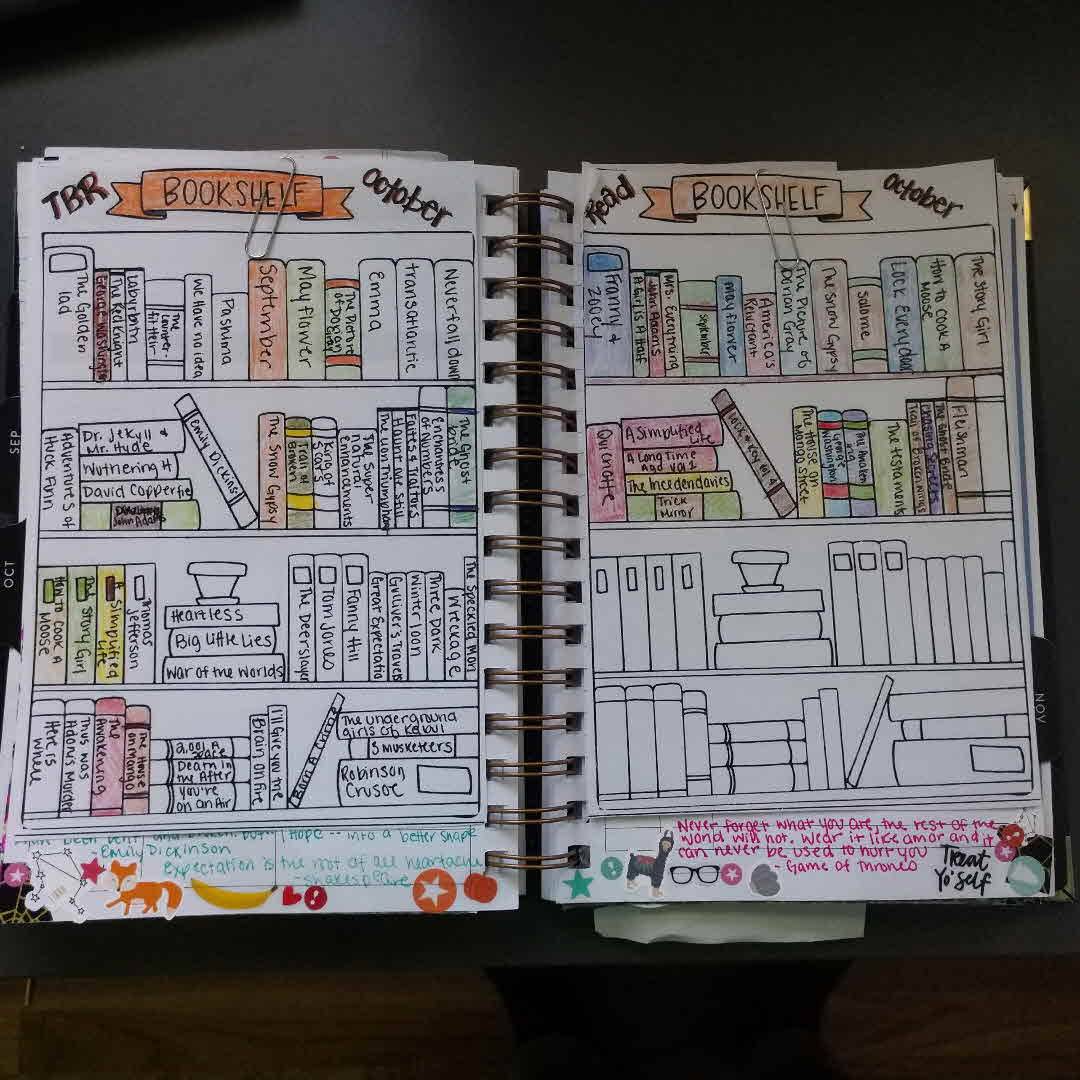 TBR
BOOKSHELF
October
The Golden
lad
George Washington
The Red Knight
Labyrinth
The
Launder
We Have no idea
Pashmina
September
Mayflower
The Picture
of Dorian
Gray
Emma
transatlantic
Never fall down
Adventures of
Huck Finn
Dr. Jekyll &
Mr. Hyde
Wuthering H
David Copperfie
John Adams
Emily Dickinson
The Snow Gypsy
Trail of
Broken
King of
Scars
The Super
natural
Enhancements
The Lion Triumphant
Haunt me Still
Faiters & Traitors
Enchantress
of Numbers
The Ghost
Bride
How to Cook A
Moose
The Story Girl
A Simplified
Life
Thomas
Jefferson
Heartless
Big Little Lies
War of the Worlds
The Deerslayer
Tom Jones
Fanny Hill
Great Expectatio
Gulliver's Travels
Winter Loon
Three Dark
Wreckage
The Speckled Mon
Here is
where
Thus was
Adonis Murdered
The
Awakening
The House
on Mango
2,001 A
Space
Death in
the After
You're
on an Air
Brain on Fire
I'll Give you the
Born A Crime
The underground
girls of Kabul
3 Musketeers
Robinson
Crusoe
been bent and broken, but I hope -- into a better shape
- Emily Dickinson
Expectation is the root of all heartache
- shakespeare
Read
BOOKSHELF
October
Franny &
Zooey
A Girl is A Half
John Adams
Mrs. Everything
September
mayflower
America's
Reluctant
The Picture of
Dorian Gray
The Snow Gypsy
Salome
Lock Every door
How to cook A
Moose
The Story Girl
Quichotte
A Simplified
Life
A Long Time
Ago Vol 1
The Incendiaries
Trick
Mirror
Lock & Key vol 4
The House on
Mango Street
George
Washington
The Awakening
The Testaments
Trail of Broken Wings
The Ghost Bride
Fleishman
Never forget what you are, the rest of the
world will not. wear it like amor and it
can never be used to hurt you
- Game of Thrones
Treat
Yo' Self
SEP
OCT
NOV